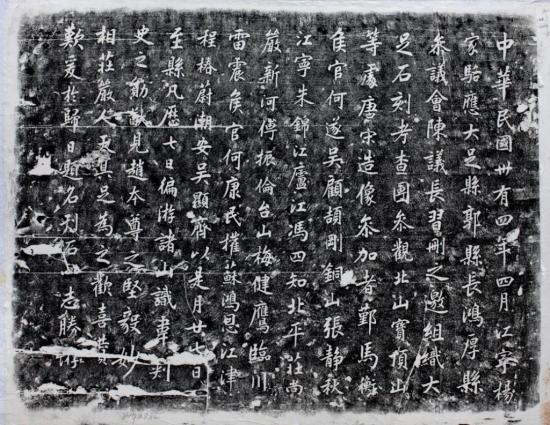 中華民國卅有四年四月江寧楊
家駱應大足縣郭縣長鴻厚縣
參議會陳議長習刪之邀組織大
足石刻考查團參觀北山寶頂山
等處唐宋造像參加者鄞馬衡
侯官何遂吳顧頡剛銅山張靜秋
江寧朱錦江廬江馮四知北平莊尚
嚴新河傅振倫台山梅健鷹臨川
雷震侯官何康民權蘇鴻恩江津
程椿蔚潮安吳顯齊以是月廿七日
至縣凡歷七日徧游諸山識韋判
史之勛猷見趙本尊之堅毅妙
相莊嚴人天具足為之歡喜贊
歎爰於歸日縣名刊石 志勝游